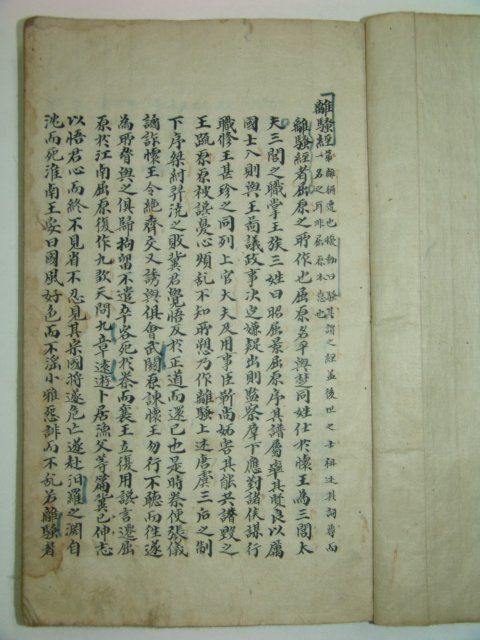 離騷經第一離猶遭也擾動曰騷其謂之經蓋後世之士祖述其詞尊而名之耳非屈原本意也
離騷經者屈原之所作也屈原名平與楚同姓仕於懷王為三閭大
夫三閭之職掌王族三姓曰昭屈景屈原序其譜屬率其賢良以厲
國士入則與王圖議政事決定嫌疑出則監察羣下應對諸侯謀行
職修王甚珍之同列上官大夫及用事臣靳尚妬害其能共譖毀之
王疏原原被讒憂心煩亂不知所愬乃作離騷上述唐虞三后之制
下序桀紂羿澆之敗冀君覺悟反於正道而還己也是時秦使張儀
譎詐懷王令絕齊交又誘與俱會武關原諫懷王勿行不聽而往遂
為所脅與之俱歸拘留不遣卒客死於秦而襄王立復用讒言遷屈
原於江南屈原復作九歌天問九章遠遊卜居漁父等篇冀已伸志
以悟君心而終不見省不忍見其宗國將遂危亡遂赴汨羅之淵自
沈而死淮南王安曰國風好色而不淫小雅怨誹而不亂若離騷者